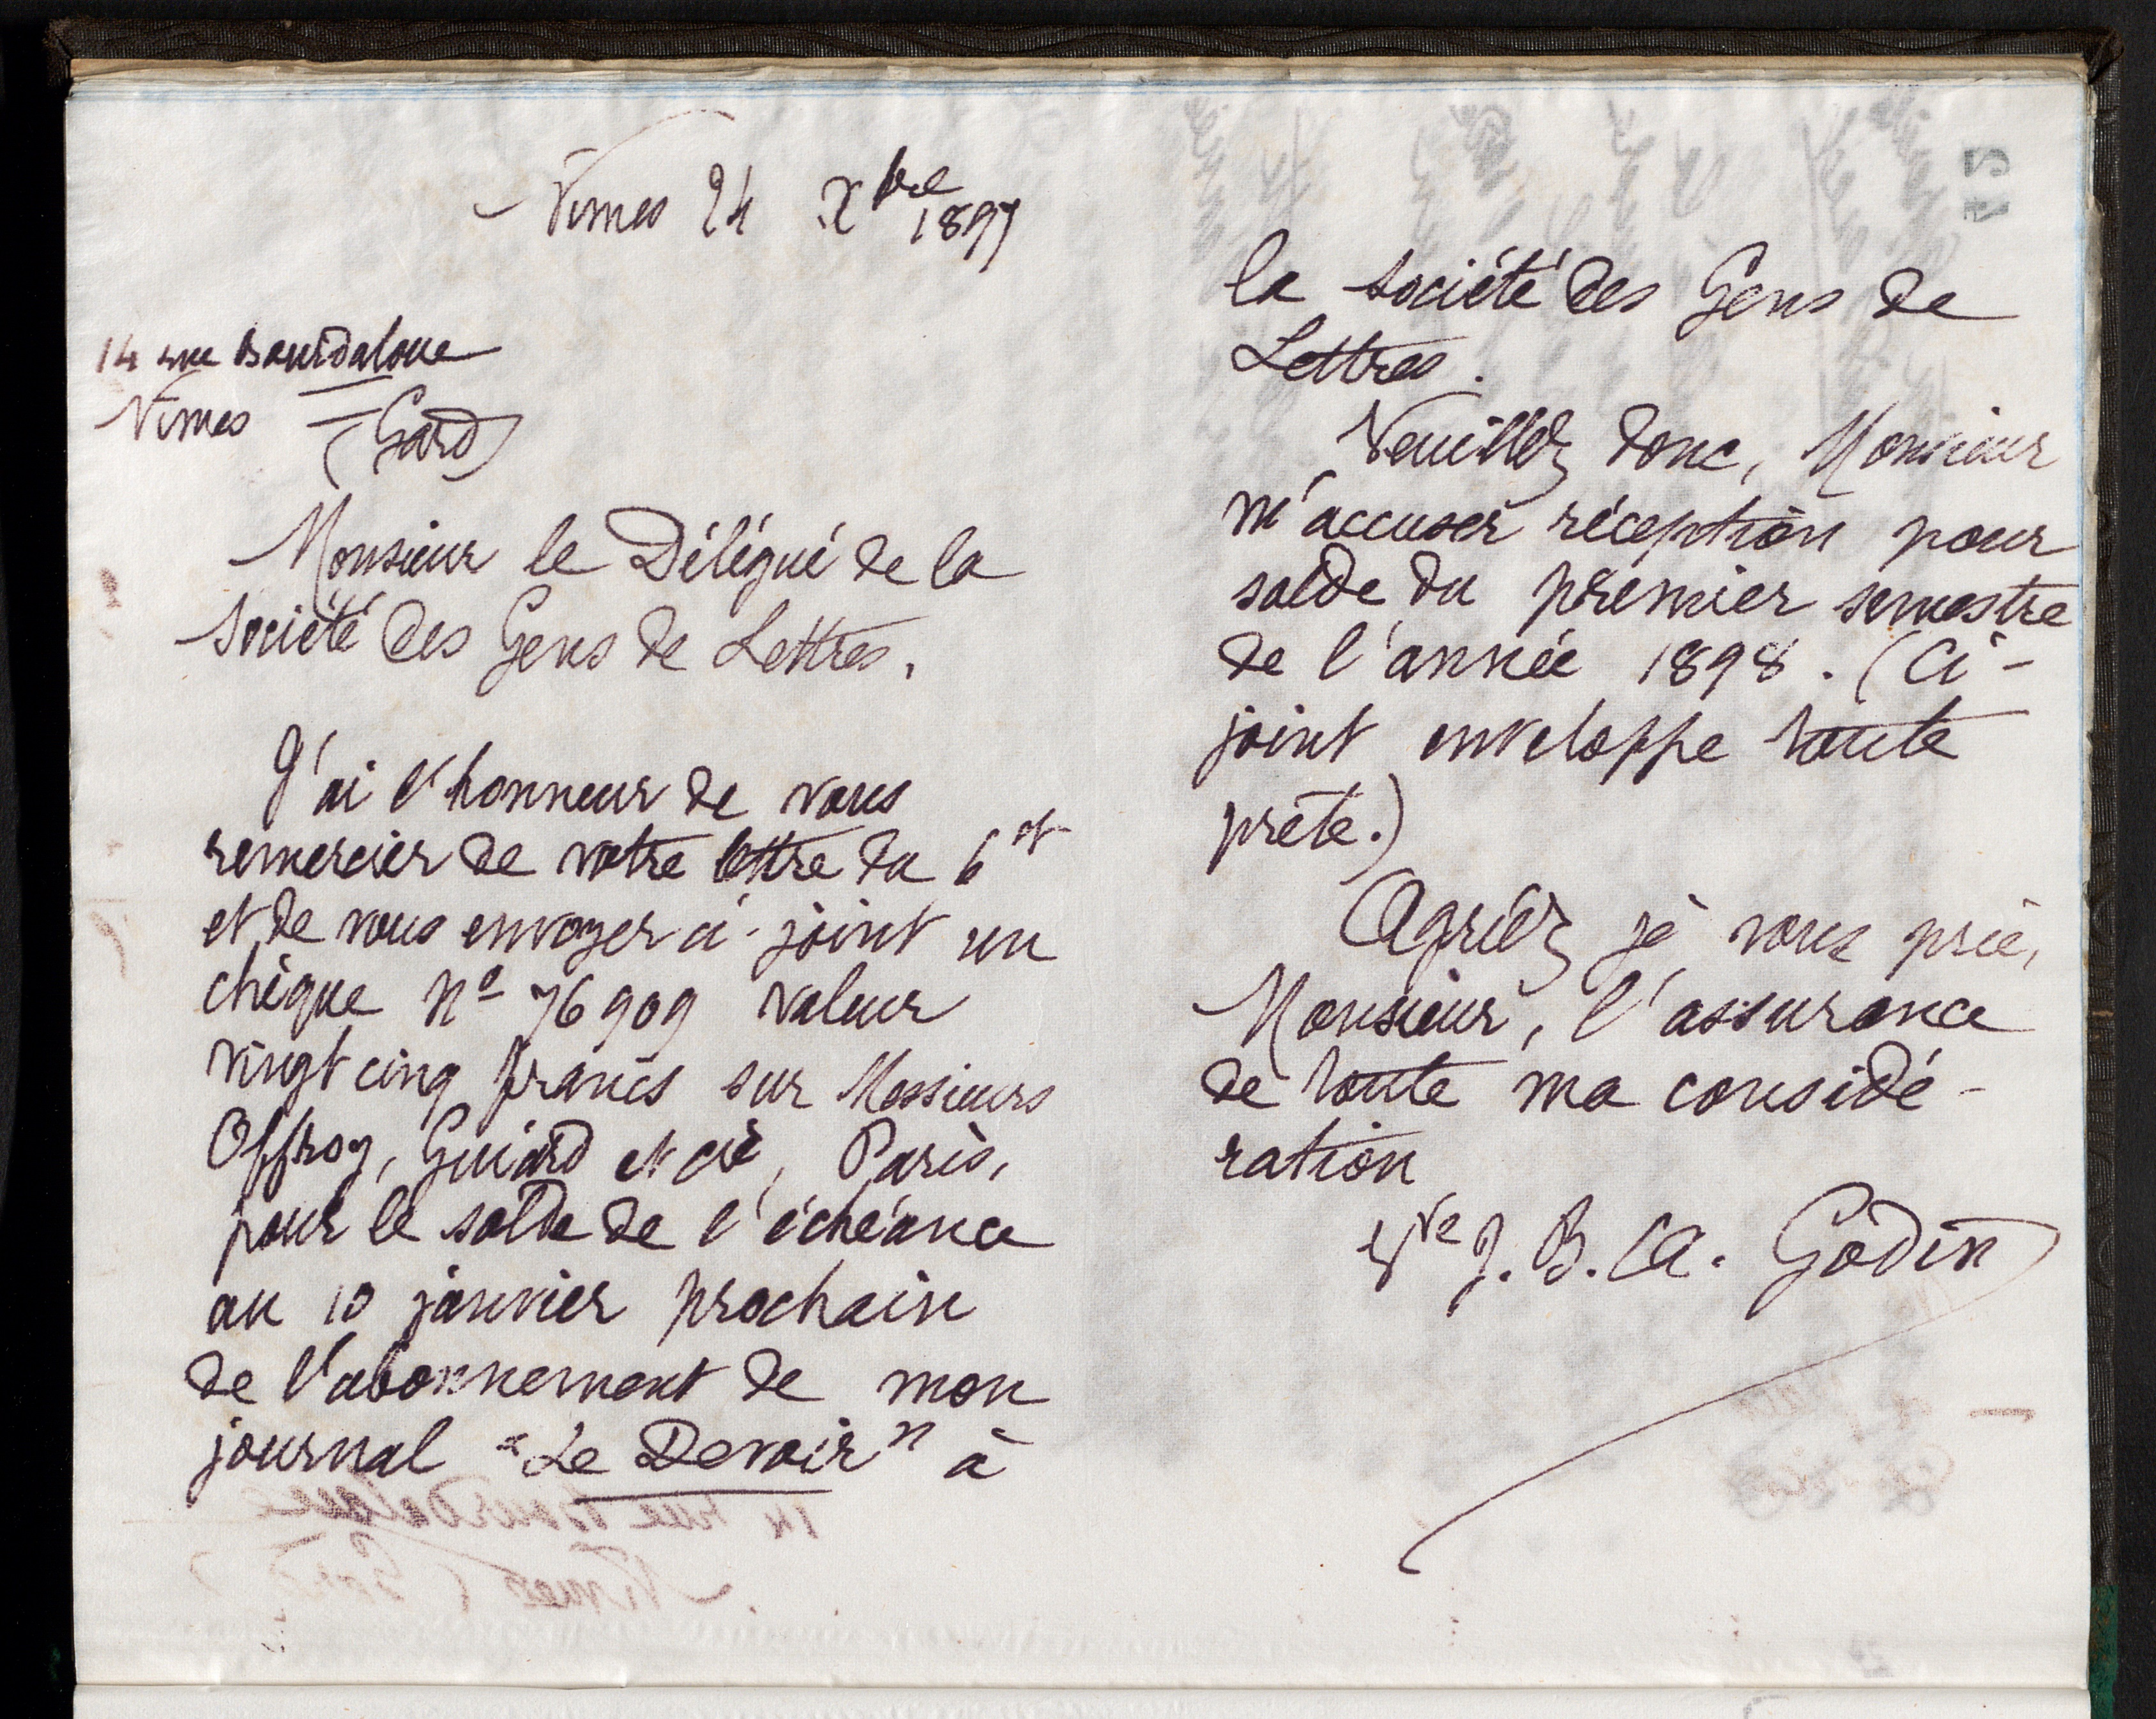 Nimes 24 Xbre 1897
14 rue Bourdaloue
Nimes (Gard)
Monsieur le Délégué de la
Société des Gens de Lettres,
J'ai l'honneur de vous
remercier de votre lettre du 6 ct
et de vous envoyer ci-joint un
chèque No 76909 valeur
vingt cinq francs sur Messieurs
Offroy, Guiard et cie, Paris,
pour le solde de l'échéance
au 10 janvier prochain
de l'abonnement de mon
journal "Le Devoir" à
75
la Société des Gens de
Lettres.
Veuillez donc, Monsieur
m'accuser réception pour
solde du premier semestre
de l'année 1898. (Ci-
joint enveloppe toute
prête.)
Agréez je vous prie,
Monsieur, l'assurance
de toute ma considé-
ration
Vve J. B. A. Godin
14 rue Bourdaloue
Nimes (Gard)